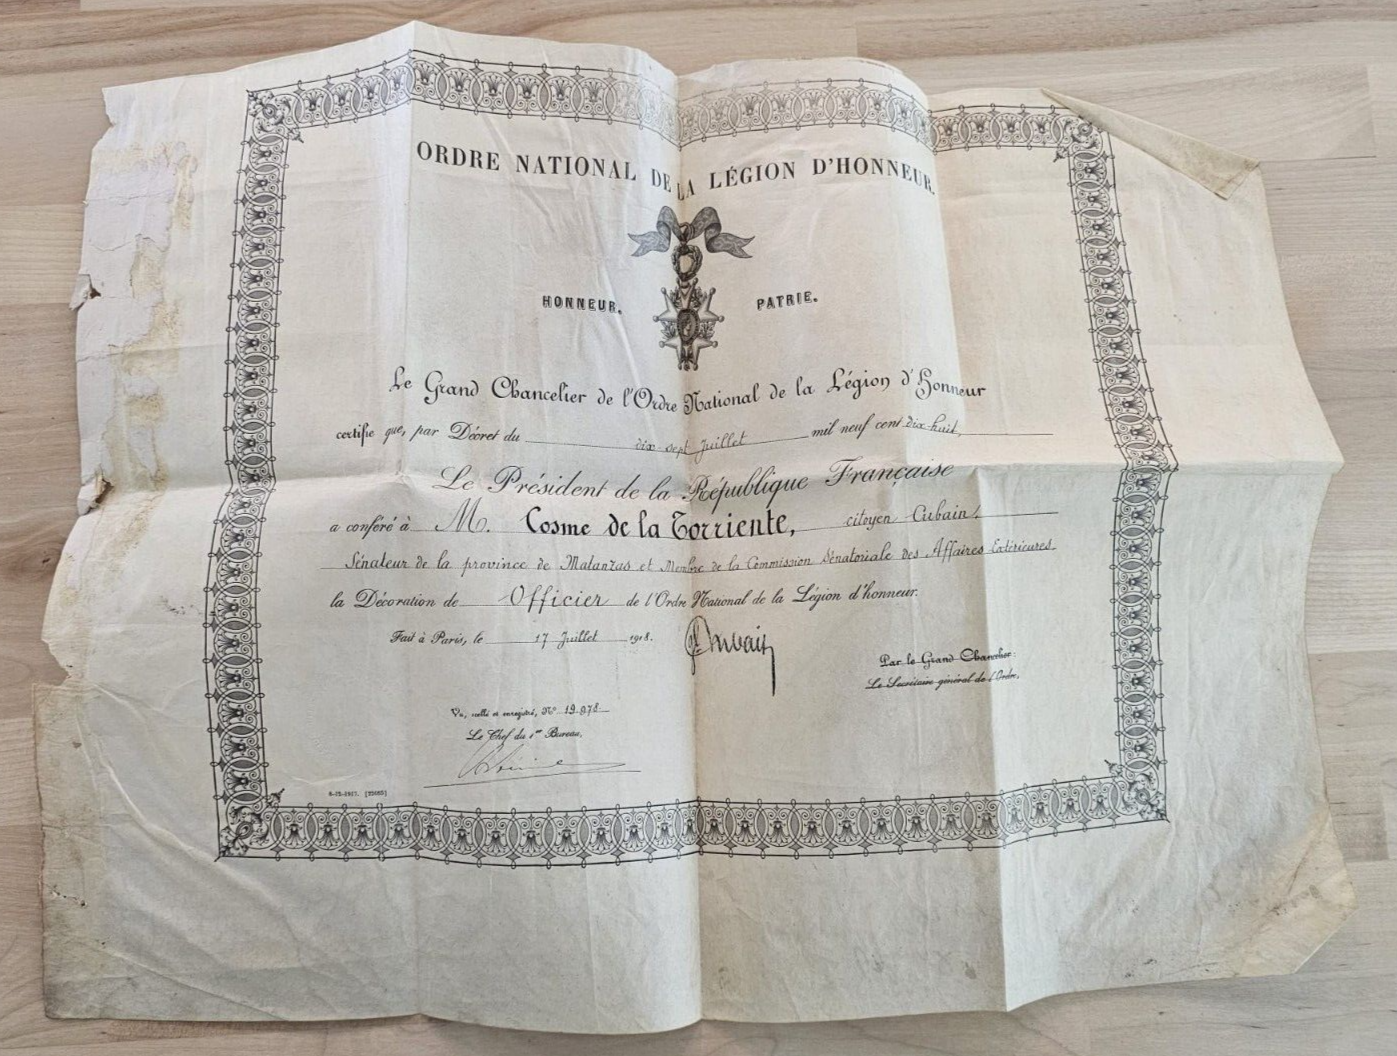 ORDRE NATIONAL DE LA LÉGION D'HONNEUR.
HONNEUR. PATRIE.
Le Grand Chancelier de l'Ordre National de la Légion d'Honneur
certifie que, par Décret du dix sept Juillet mil neuf cent dix-huit,
Le Président de la République Française
a conféré à M. Cosme de la Torriente, citoyen Cubain,
Sénateur de la province de Matanzas et Membre de la Commission Sénatoriale des Affaires Extérieures
la Décoration de Officier de l'Ordre National de la Légion d'honneur.
Fait à Paris, le 17 Juillet 1918.
Par le Grand Chancelier:
Le Secrétaire général de l'Ordre,
Vu, scellé et enregistré, N° 19.978
Le Chef du 1er Bureau,